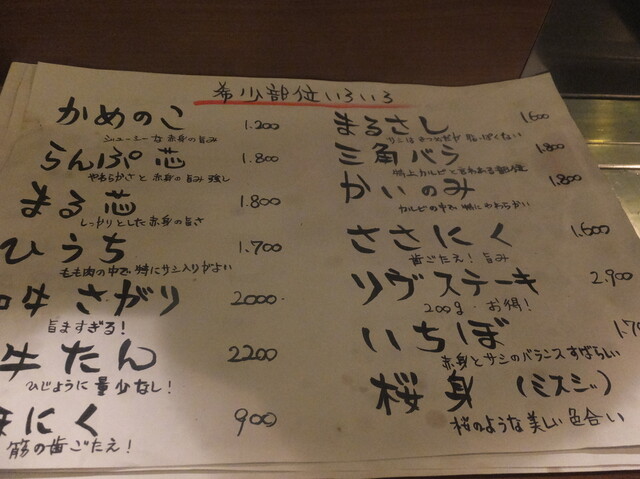 希少部位いろいろ
かめのこ 1.200
ジューシーな赤身の旨み
らんぷ芯 1.800
やわらかさと赤身の旨み強し
まる芯 1.800
しっかりとした赤身の旨さ
ひうち 1.700
もも肉の中で特にサシ入りがよい
牛さがり 2000.
旨ますぎる!
牛たん 2200
ひじょうに量少なし!
にく 900
筋の歯ごたえ!
まるさし 1.600
三角バラ 1.800
特上カルビと言われる部位
かいのみ 1.800
カルビの中で特にやわらかい
ささにく 1.600
歯ごたえ!旨み
リヴステーキ 2.900
200g お得!
いちぼ 1.70
赤身とサシのバランスすばらしい
桜身(ミスジ)
桜のような美しい色合い